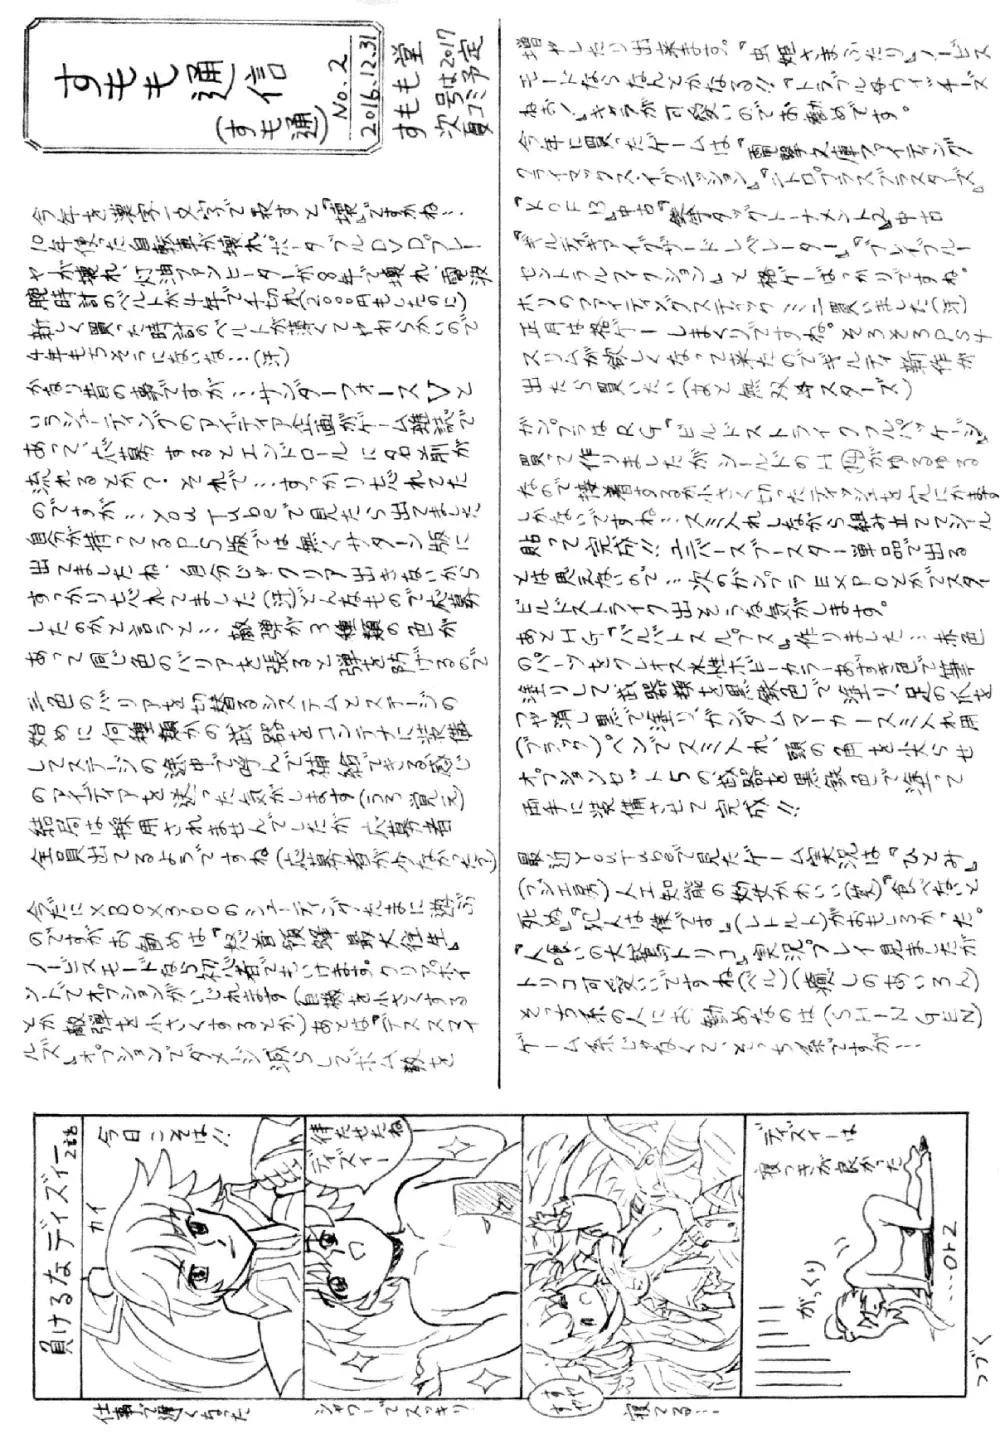 すもも通信
(すも通)
No.2
2016.12.31
すもも堂
次号は2017
夏コミ予定
今年を漢字一文字で表すと『壊』ですかね…
10年使った自動車が壊れ、ポータブルDVDプレー
ヤーが壊れ、灯油ファンヒーターが8年で壊れ、電波
腕時計のベルトが4年で千切れ(2000円もしたのに)
新しく買った時計のベルトが薄くてやわらかいので
4年もちそうにないな…(汗)
かなり昔の事ですが…サンダーフォースVと
いうシューティングのアイディア企画がゲーム雑誌で
あって、応募するとエンドロールに名前が
流れるとか?それで…すっかり忘れてた
のですが…YouTubeで見たら出てました
自分が持ってるPS版では無くサターン版に
出てましたね、自分じゃクリア出きないから
すっかり忘れてました(汗)どんなもので応募
したのかと言うと…敵弾が3種類の色が
あって同じ色のバリアを張ると弾を防げるので
三色のバリアを切替るシステムとステージの
始めに何種類かの武器をコンテナに装備
してステージの途中で呼んで補給できる感じ
のアイディアを送った気がします(うろ覚え)
結局は採用されませんでしたが応募者
全員出てるようですね(応募者が少なかった?)
今だにXBOX360のシューティングたまに遊ぶ
のですがお勧めは『怒首領蜂最大往生』
ノービスモードなら初心者でもいけます。クリアポイ
ントでオプションがいじれます(自機を小さくする
とか敵弾を小さくするとか)あとは『デススマイ
ルズ』オプションでダメージ減らしてボム数を
増やしたり出来ます。『虫姫さまふたり』ノービス
モードならなんとかなる!!『トラブル☆ウィッチーズ
ねお!』キャラが可愛いのでお勧めです。
今年に買ったゲームは『電撃文庫ファイティング
クライマックス・イグニッション』『ニトロプラスブラスターズ』
『KOF13』中古『鉄拳タッグトーナメント2』中古
『ギルティギアイグザードレベレーター』『ブレイブルー
セントラルフィクション』と格ゲーばっかりですね。
ホリのファイティングスティックミニ買いました(汗)
正月は格ゲーしまくりですね。そろそろPS4
スリムが欲しくなって来たのでギルティ新作が
出たら買いたい(あと無双☆スターズ)
ガンプラはRG『ビルドストライクフルパッケージ』
買って作りましたがシールドのH
がゆるゆる
なので接着するか小さく切ったティッシュを穴にかます
しかないですね…スミ入れしながら組み立ててシール
貼って完成!!ユニバースブースター単品で出る
とは思えないので…次のガンプラEXPOとかでスター
ビルドストライク出そうな気がします。
あとHG『バルバトスルプス』作りました…赤色
のパーツをクレオス水性ホビーカラーあずき色で筆
塗りして武器類を黒鉄色で塗り、足の爪を
つや消し黒で塗り、ガンダムマーカースミ入れ用
(ブラウン)ペンでスミ入れ、頭の角を尖らせ
オプションセット5の武器を黒鉄色で塗って
両手に装備させて完成!!
最近YouTubeで見たゲーム実況は『ひとみ』
(フジエ房)人工知能の幼女かわいい(笑)『食べないと
死ぬ』『犯人は僕です。』(レトルト)がおもしろかった。
『人喰いの大鷲トリコ』実況プレイ見ましたが
トリコ可愛いですね(ベル)(癒しのあいろん)
そっち系の人にお勧めなのは(SHIN GEN)
ゲーム系じゃなくて、そっち系ですが…
負けるなディズィー
2ページ
カイ
今日こそは!!
仕事で遅くなった
待たせたね
ディズィー
シャワーでスッキリ
すやすや
寝てる…
ディズィーは
寝つきが良かった
がっくり
…orz
つづく